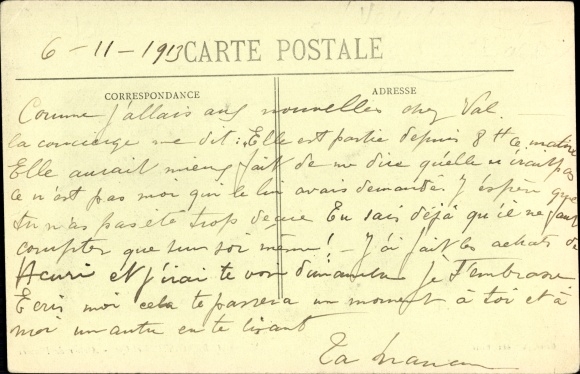 6 - 11 - 1913 CARTE POSTALE
CORRESPONDANCE
ADRESSE
Comme j'allais aux nouvelles chez Val.
la concierge me dit : Elle est partie depuis 8h ce matin
Elle aurait mieux fait de me dire qu'elle n'irait pas
ce n'est pas moi qui le lui avais demandé. J'espère que
tu n'as pas été trop deçue Tu sais déjà qu'il ne faut
compter que sur soi même ! - J'ai fait les achats de
et j'irai te voir dimanche je t'embrasse
Ecris moi cela te passera un moment à toi et à
moi un autre en te lisant
Ta maman